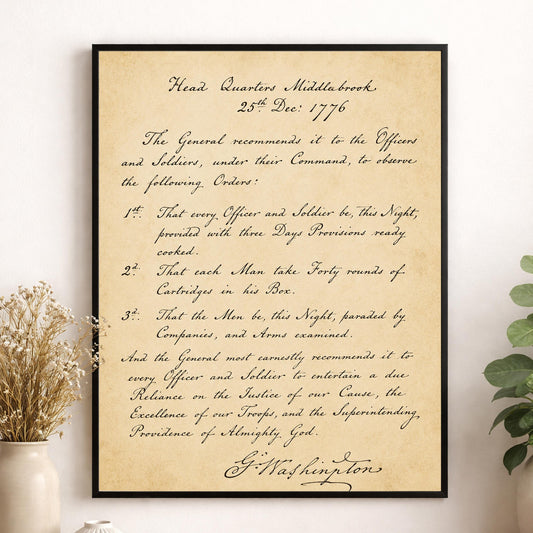 Head Quarters Middlebrook
25th Dec: 1776
The General recommends it to the Officers
and Soldiers, under their Command, to observe
the following Orders:
1st. That every Officer and Soldier be, this Night,
provided with three Days Provisions ready
cooked.
2d. That each Man take Forty rounds of
Cartridges in his Box.
3d. That the Men be, this Night, paraded by
Companies, and Arms examined.
And the General most earnestly recommends it to
every Officer and Soldier to entertain a due
Reliance on the Justice of our Cause, the
Excellence of our Troops, and the Superintending
Providence of Almighty God.
Go Washinpton